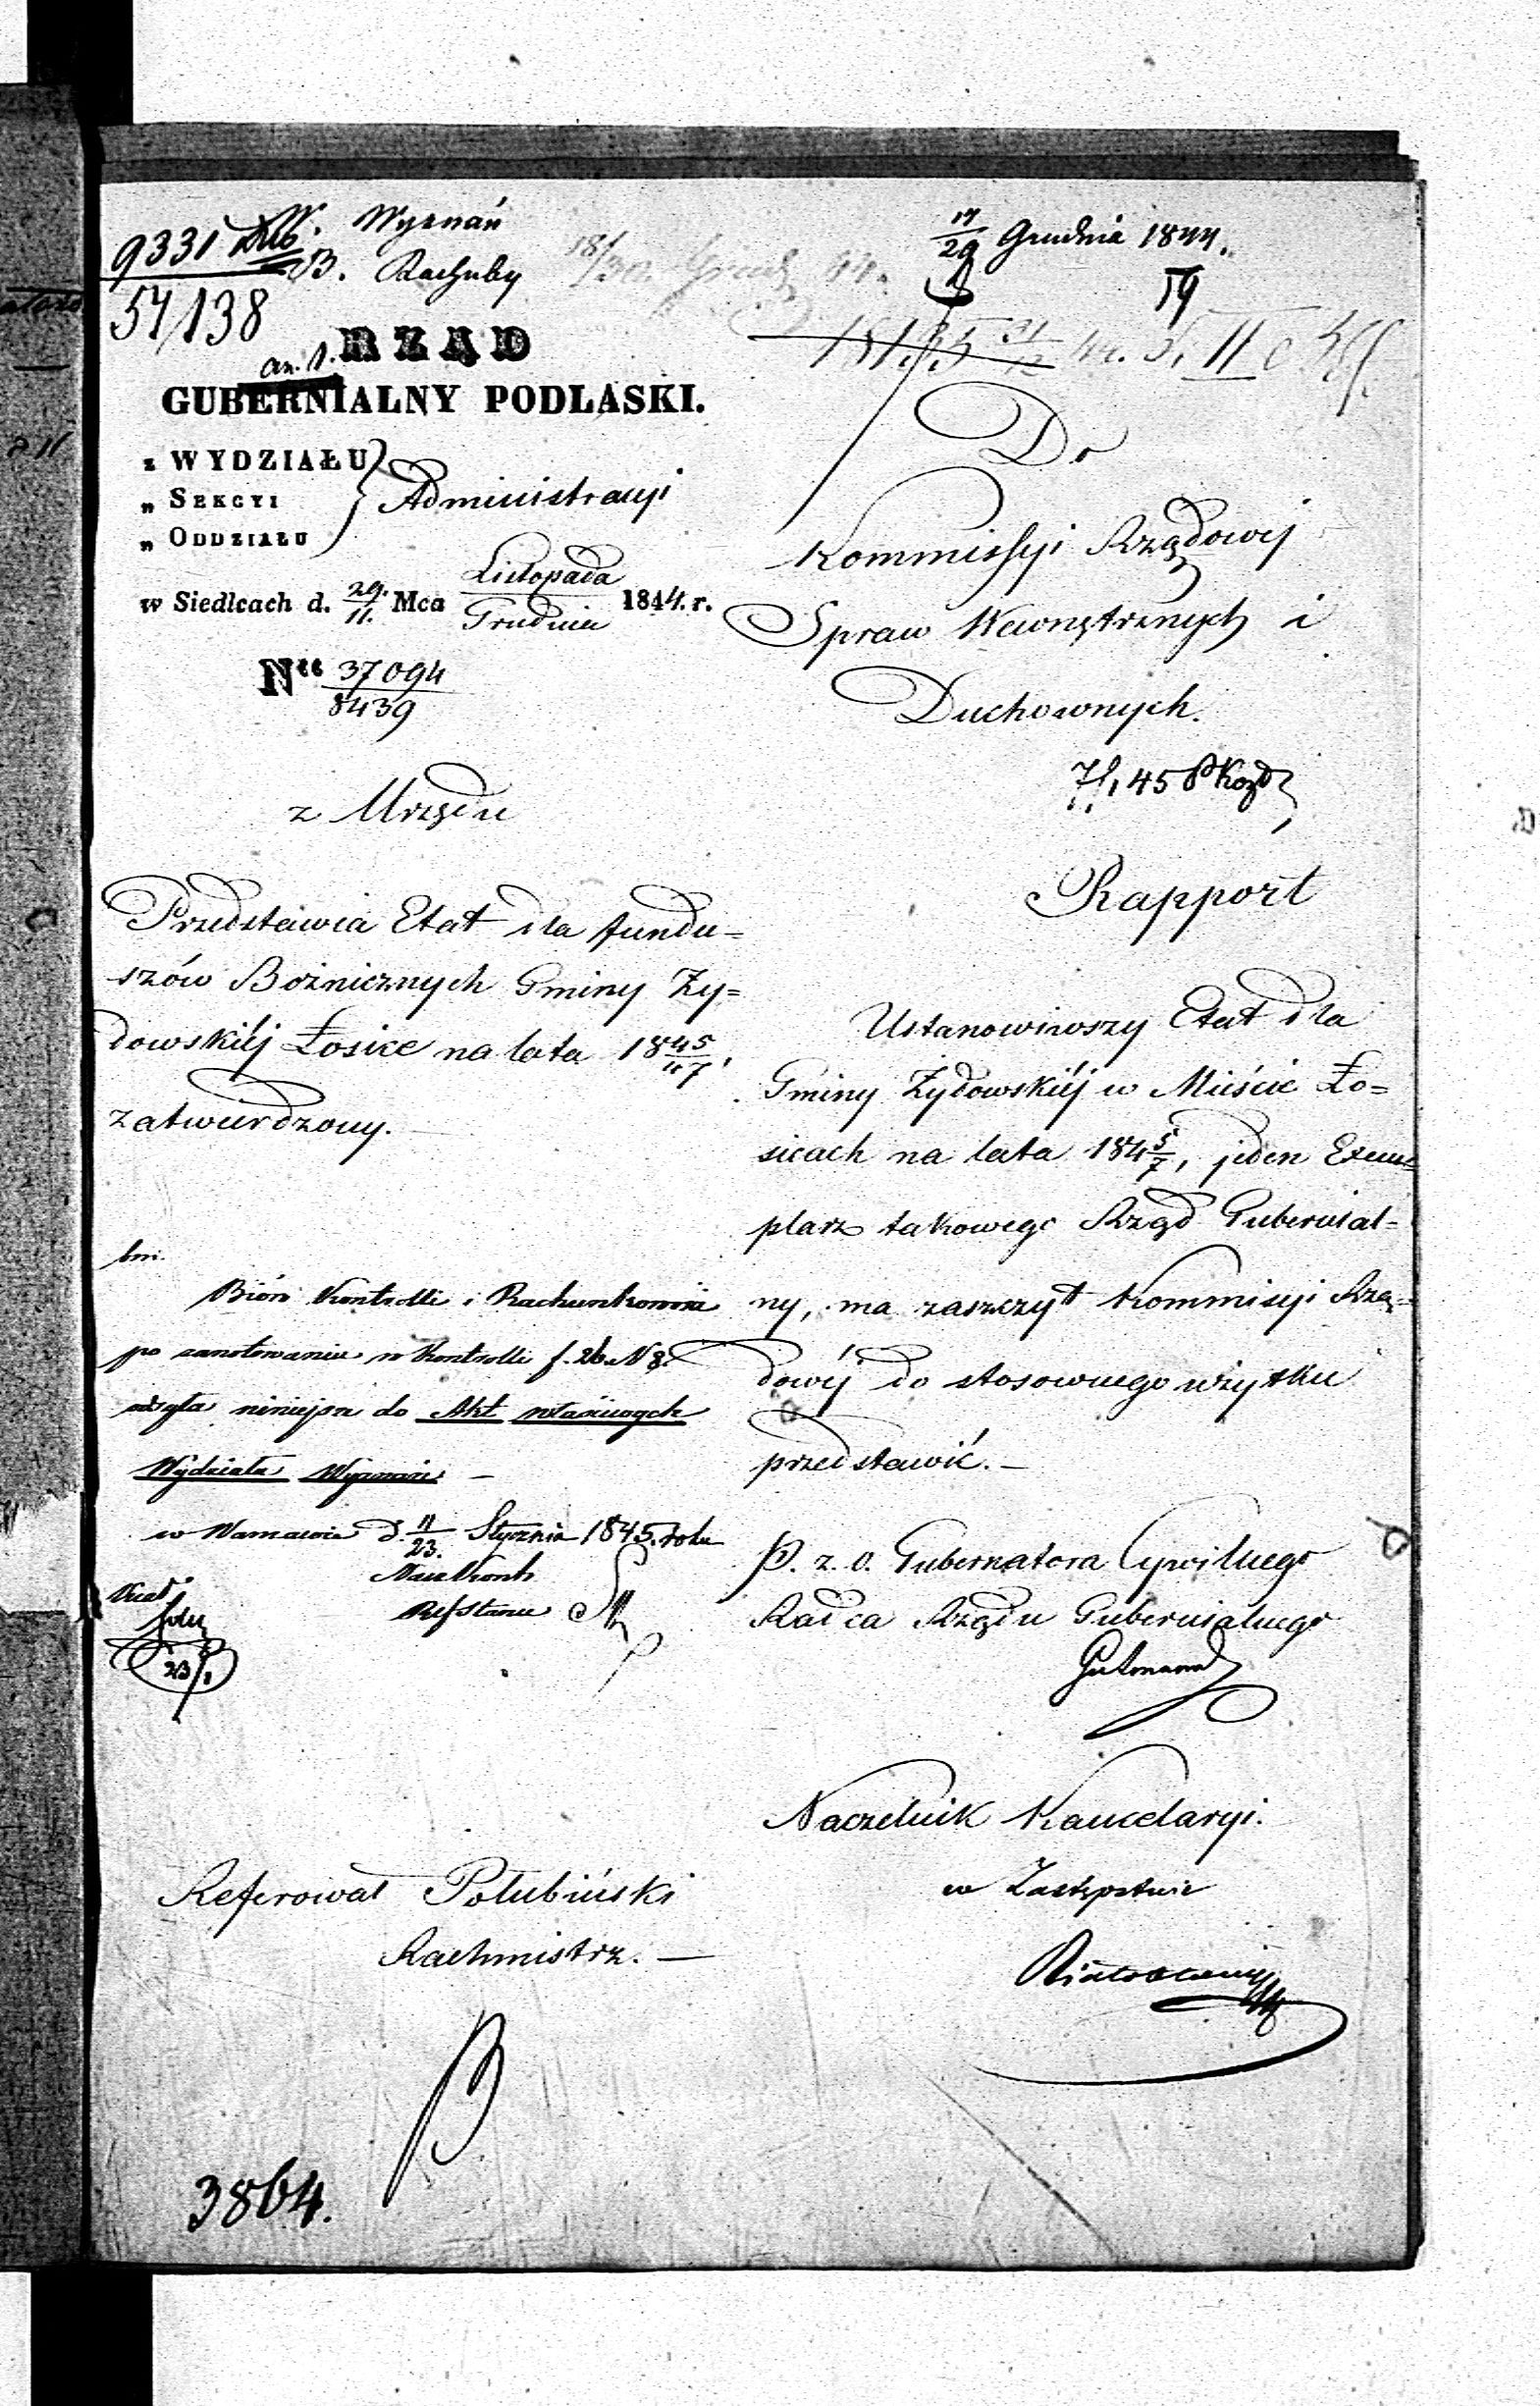 9331
W. Wyznań
B. Rachuby
54/138
17/29 Grudnia 1844.
RZĄD
GUBERNIALNY PODLASKI.
z WYDZIAŁU
„ SEKCYI
„ ODDZIAŁU
Administracyi
w Siedlcach d. 29./11. Mca Listopada/Grudnia 1844. r.
N 37094/8439
z Urzędu
Przedstawia Etat dla fundu=
szów Bożnicznych Gminy Ży=
dowskiéj Łosice na lata 1845/47,
zatwierdzony.
Do
Kommissyi Rządowej
Spraw Wewnętrznych i
Duchownych.
Rapport
Ustanowiwszy Etat dla
Gminy Żydowskiéj w Mieście Ło=
sicach na lata 1845/7, jeden Exem=
plarz takowego Rząd Gubernial=
ny, ma zaszczyt Kommissyi Rzą=
dowéj do stosownego użytku
przedstawić. —
P. z. O. Gubernatora Cywilnego
Radca Rządu Gubernialnego
Gutmann
Naczelnik Kancelaryi.
w Zastępstwie
Bióro Kontrolli i Rachunkowa
po zanotowaniu w Kontrolli f. 26 N 8.
odsyła niniejsze do Akt właściwych
Wydziału Wyznań —
w Warszawie d. 11/23. Stycznia 1845. roku
23/1
Referował Połubiński
Rachmistrz. —
3864.